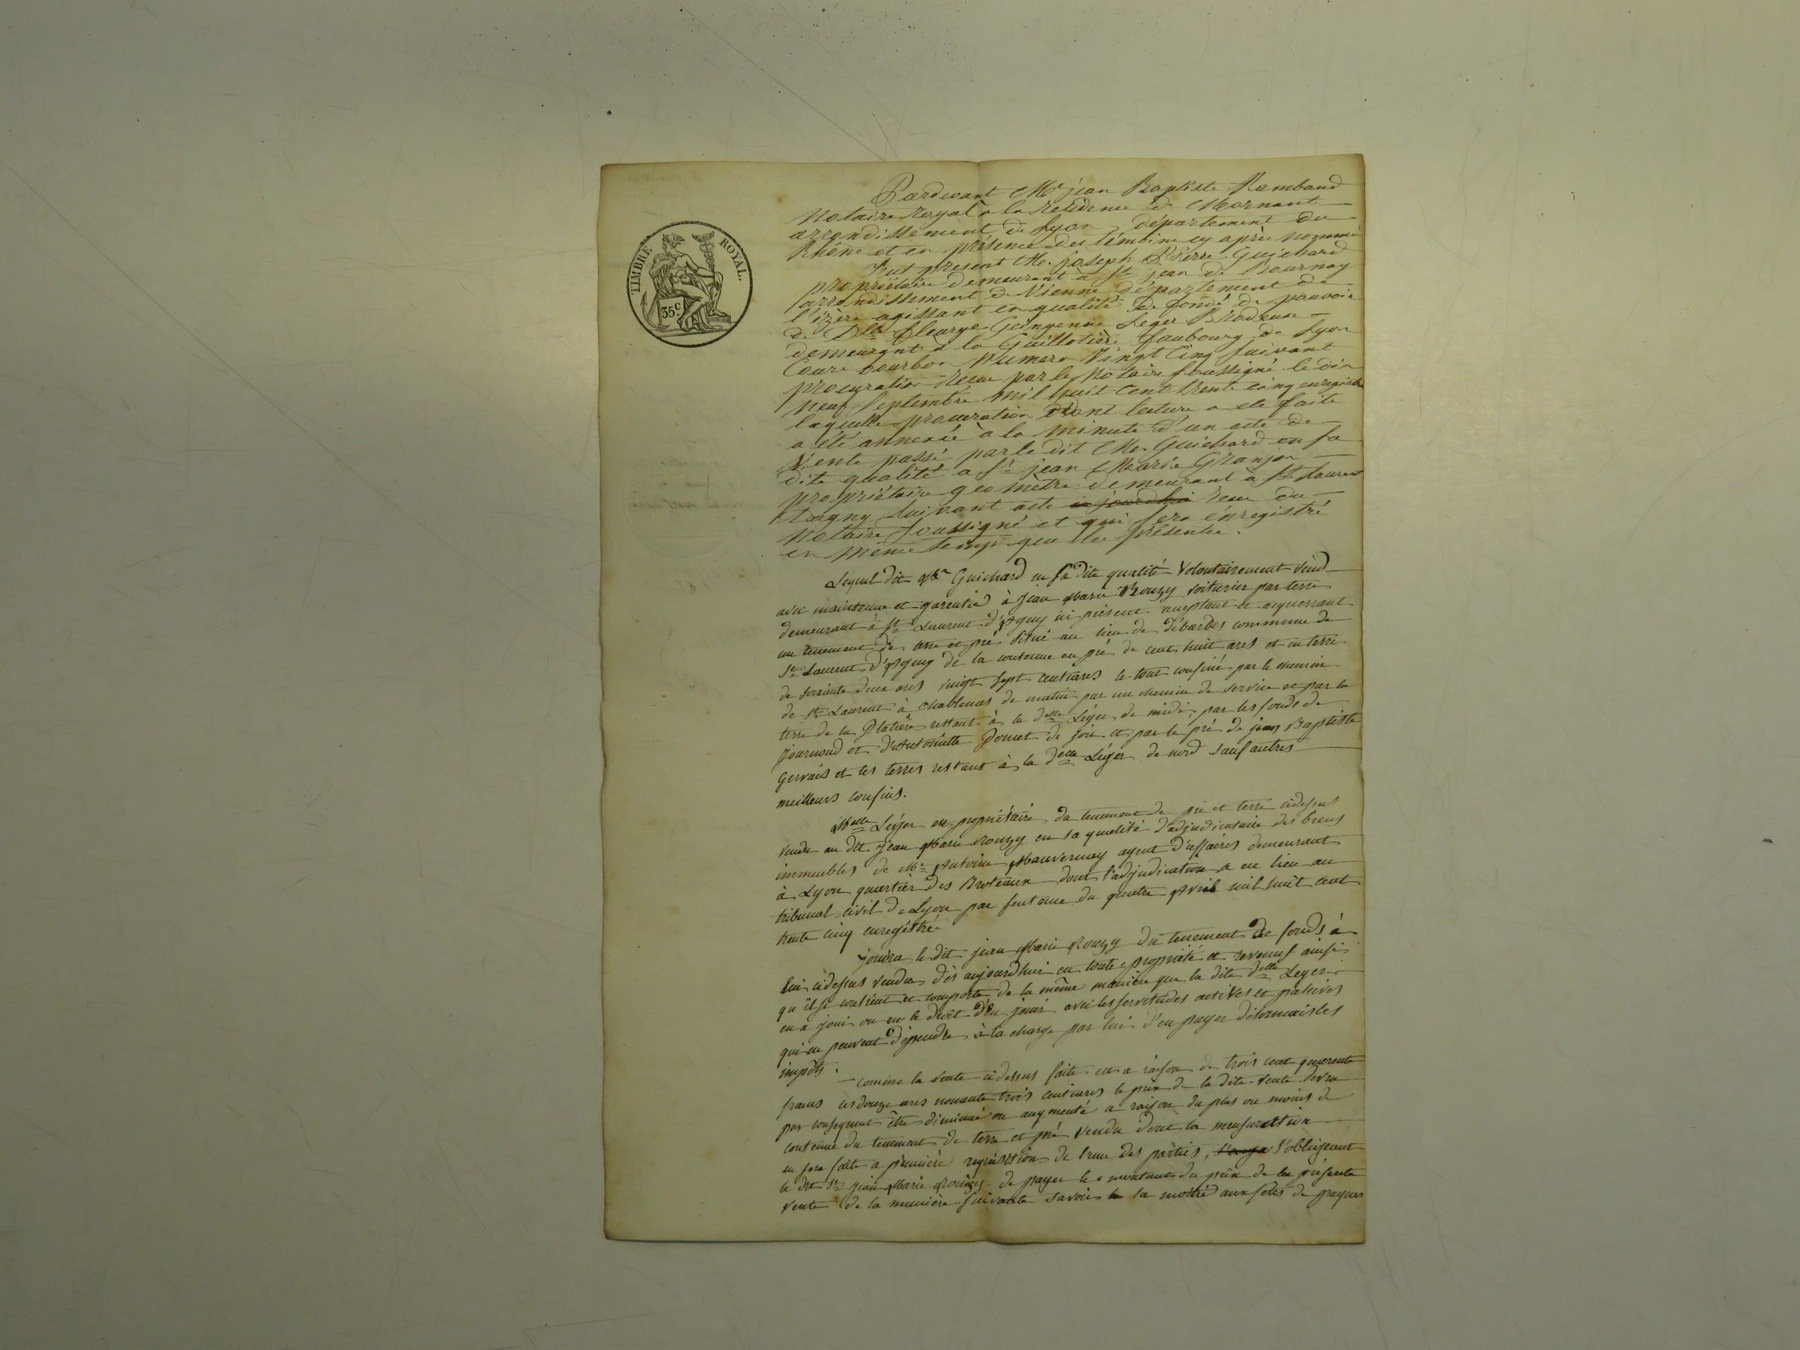 TIMBRE ROYAL.
35 c
Pardevant Me jean Baptiste Rambaud
Notaire royal à la résidence de Mornant
arrondissement de Lyon département du
Rhône et en présence des témoins cy après nommés
Fut present Mr joseph Pierre Guichard
propriétaire demeurant à St jean de Bournay
arrondissement de Vienne département de
l'izère agissant en qualité de fondé de pouvoir
de Dlle Fleurye Leger Brodeuse
demeurant à la Guillotière faubourg de Lyon
Cours bourbon Numero Vingt Cinq suivant
procuration recue par le Notaire soussigné le dix
neuf Septembre mil huit Cent trente cinq enregistré
laquelle procuration dont lecture a été faite
a été annexée à la minute d'un acte de
Vente passé par le dit Mr Guichard en sa
dite qualité a Sr jean Marie Granjon
propriétaire geomètre demeurant à St Laurent
d'agny suivant acte ce jourd'hui recu du
Notaire soussigné et qui sera énregistré
en même temps que les présentes.
Lequel dit Mr Guichard en sa dite qualité Volontairement vend
avec maintenue et garentie à Jean Marie Rouzy voiturier par terre
demeurant à St Laurent d'Agny ici présent acceptant et acquerrant
un tenement de terre et pré situé au lieu de débarbes commune de
St Laurent d'Agny de la contenue en pré de cent huit ares et en terre
de soixante deux ares vingt sept centiares le tout confiné par le chemin
de St Laurent à Chablenas de matin par un chemin de service et par la
terre de la Platière restant à la delle Léger de midi par les fonds de
Journoud et d'Antoinette Poncet de soir et par le pré de jean Baptiste
Gervais et les terres restant à la delle Léger de nord sauf autres
meilleurs confins.
Melle Léger est propriétaire du tenement de pré et terre cidessus
vendu au dit Jean Marie Rouzy en sa qualité d'adjudicataire des biens
immeubles de Mr Antoine Mauvernay agent d'affaires demeurant
à Lyon quartier des Broteaux dont l'adjudication a eu lieu au
tribunal civil de Lyon par sentence du quatre Avril mil huit cent
trente cinq enregistré
jouira le dit jean Marie Rouzy du tenement de fonds à
lui cidessus vendu dès aujourdhui en toute propriété et revenus ainsi
qu'il se contient et comporte de la même manière que la dite delle Leger
en a joui ou eu le droit d'en jouir avec les servitudes actives et passives
qui en peuvent dépendre à la charge par lui d'en payer désormais les
impôts.
comme la vente cidessus faite en a raison de trois cent quarente
francs les douze ares nonante trois centiares le prix de la dite vente devra
par consequent être diminué ou augmenté a raison du plus ou moins de
contenue du tenement de terre et pré Vendu dont la mensuration
en sera faite a première requisition de l'une des parties, s'obligeant
le dit Sr jean Marie Rouzy de payer le montant du prix de la présente
vente de la manière suivante savoir la moitié aux fêtes de paques